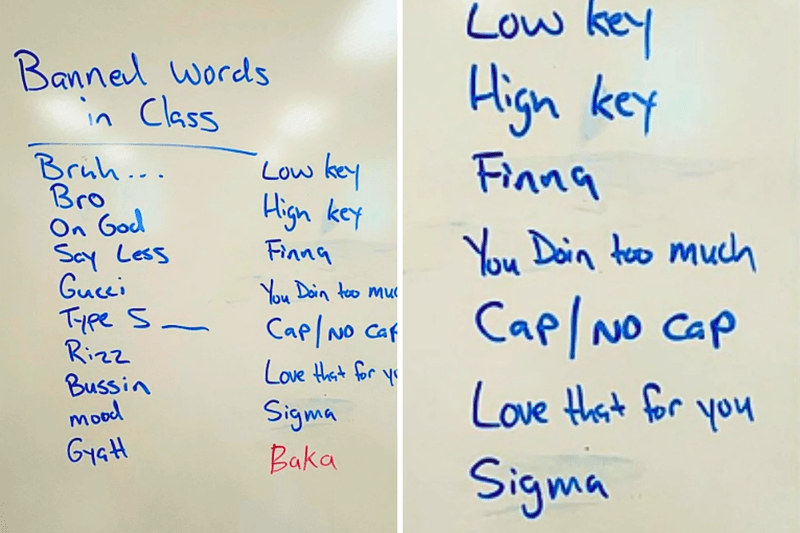 Banned words
in Class
Bruh...
Bro
On God
Say Less
Gucci
Type S __
Rizz
Bussin
mood
Gyatt
Low key
High key
Finna
You Doin too muc
Cap/No cap
Love that for yo
Sigma
Baka
Low key
High key
Finna
You Doin too much
Cap/No cap
Love that for you
Sigma